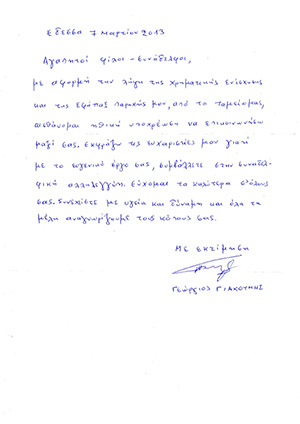 Έδεσσα 7 Μαρτίου 2013
Αγαπητοί φίλοι - Συνάδελφοι,
με αφορμή την λήψη της χρηματικής Ενίσχυσης
και της Εφάπαξ παροχής μου, από το Ταμείο μας,
αισθάνομαι ηθική υποχρέωση να επικοινωνήσω
μαζί σας. Εκφράζω τις ευχαριστίες μου γιατί
με το ευγενικό έργο σας, συμβάλετε στην συναδελ-
φική αλληλεγγύη. Εύχομαι τα καλύτερα σ' όλους
σας. Συνεχίστε με υγεία και δύναμη και όλα τα
μέλη αναγνωρίζουμε τους κόπους σας.
Με εκτίμηση
Γεώργιος Γιακουμής